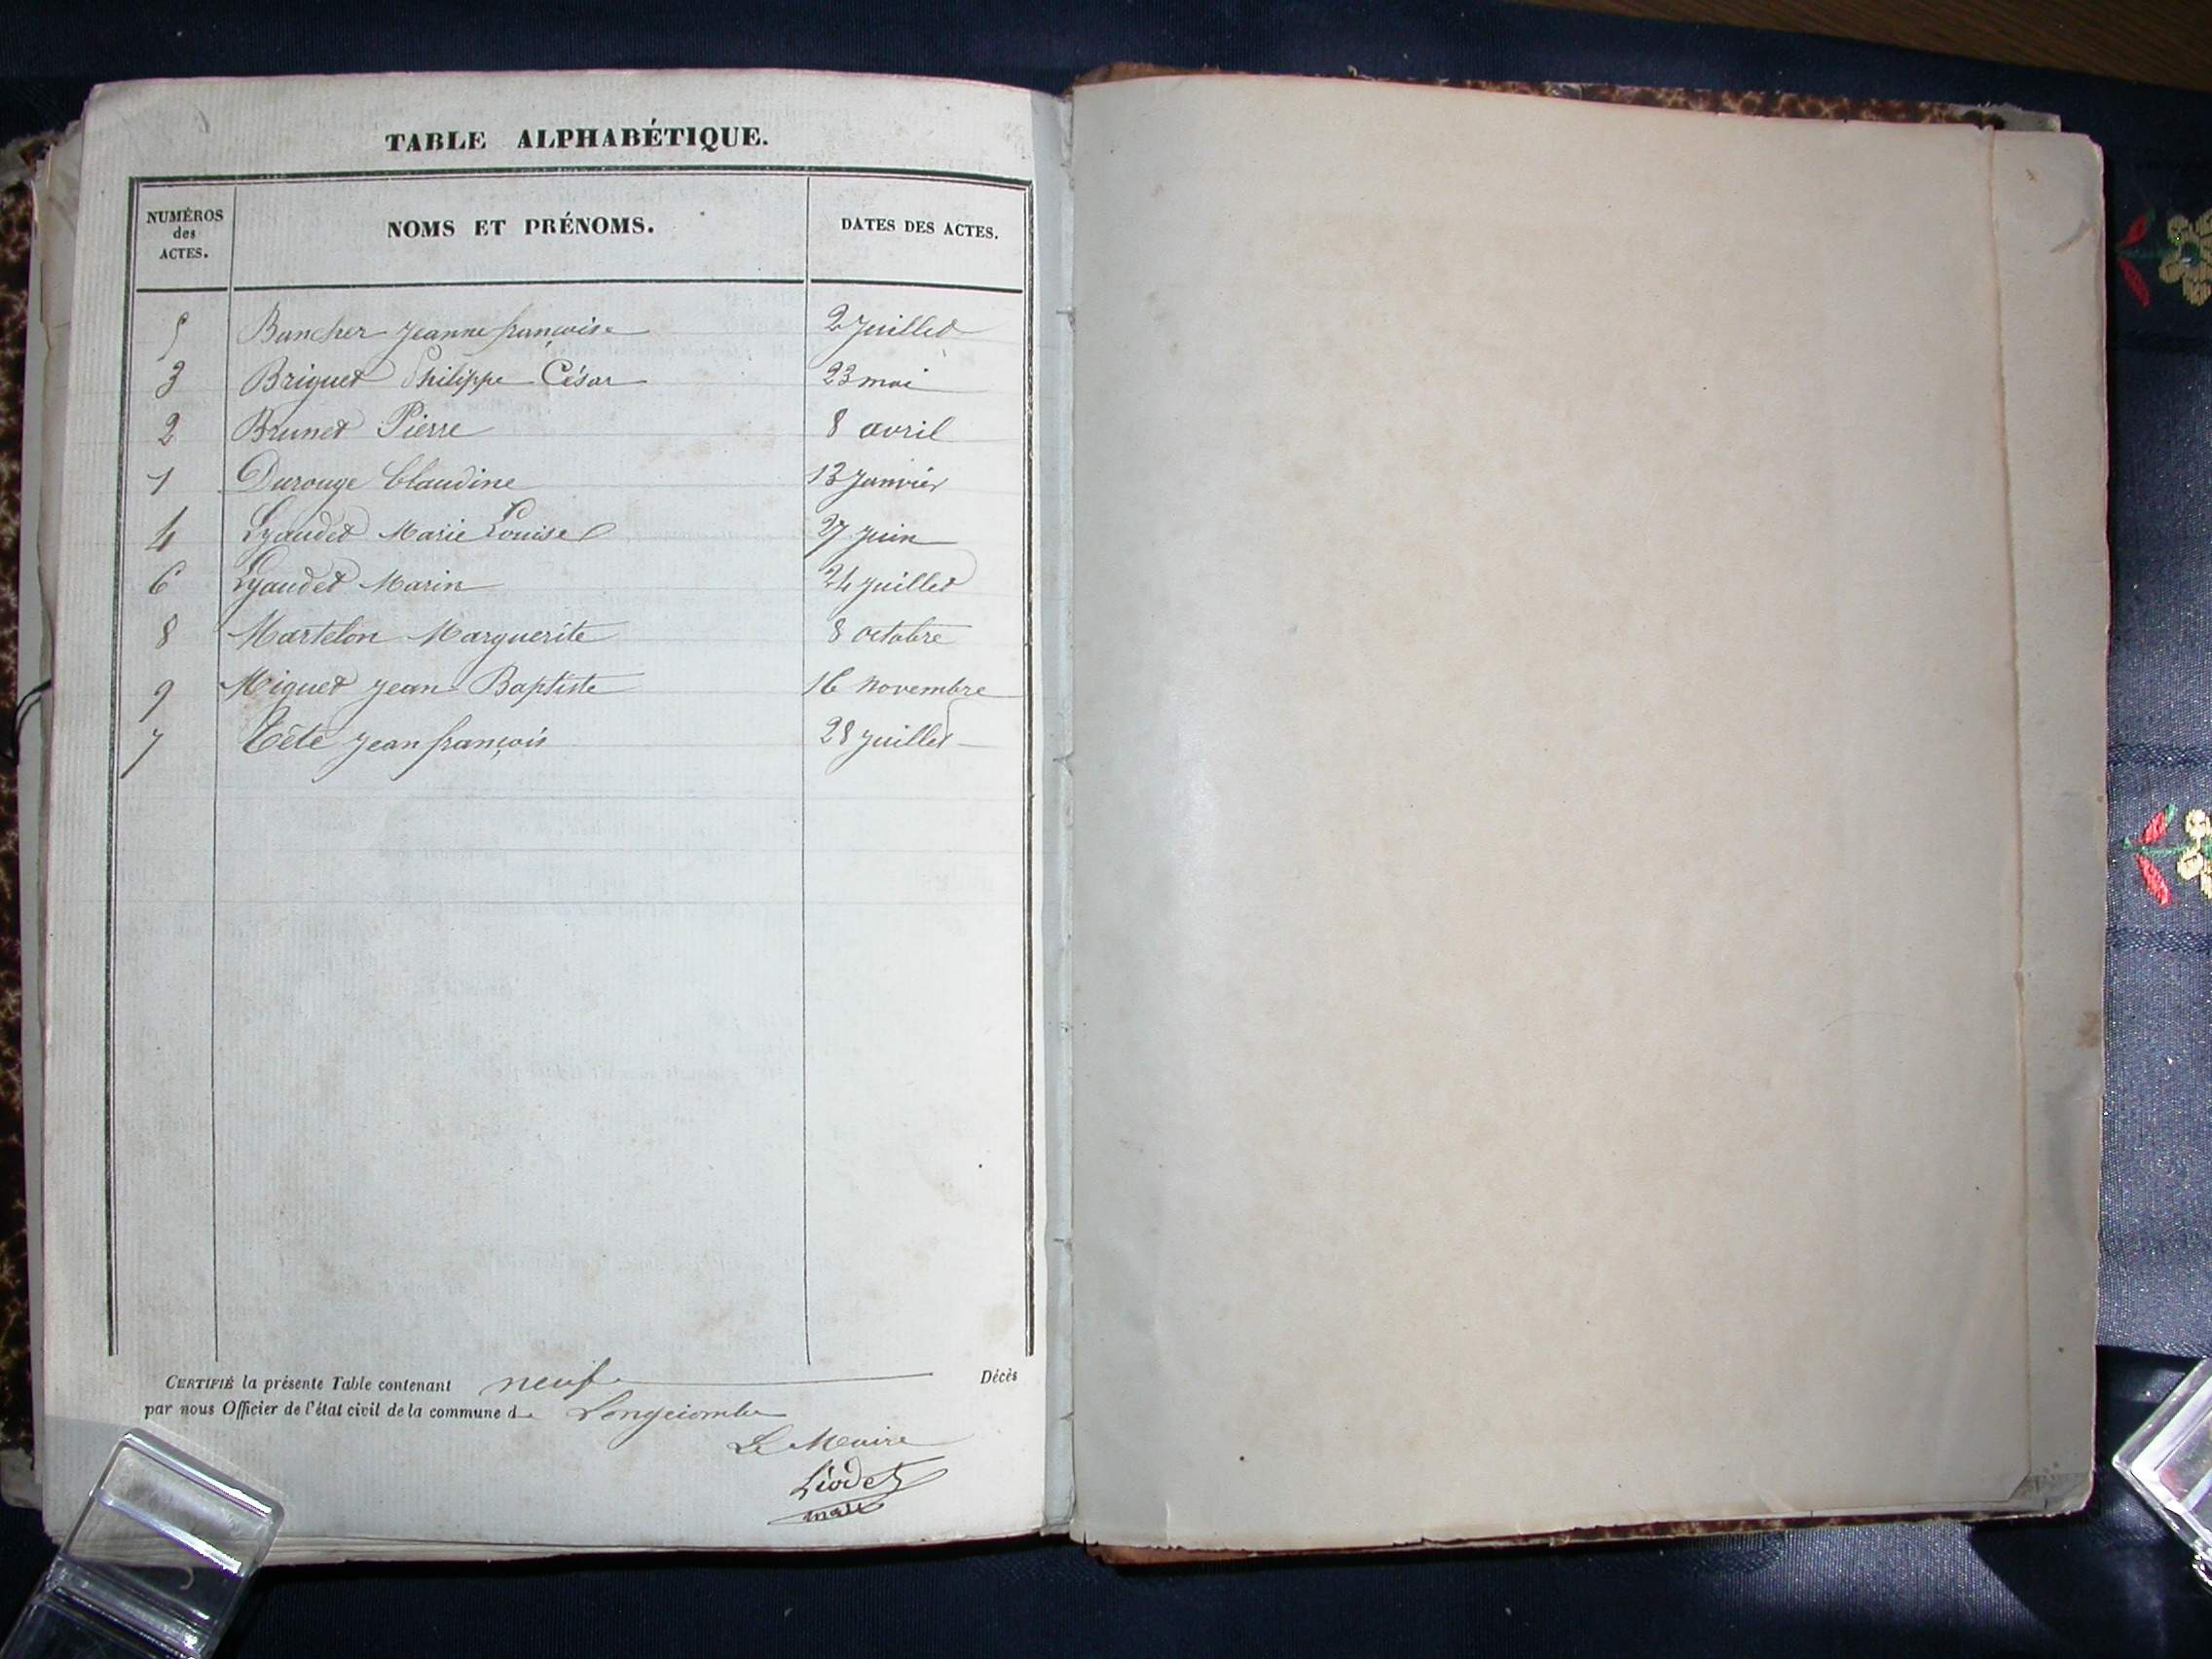 TABLE ALPHABÉTIQUE.
NUMÉROS des ACTES. NOMS ET PRÉNOMS. DATES DES ACTES.
5 Buncher Jeanne françoise 2 Juillet
3 Briquet Philippe César 23 mai
2 Brunet Pierre 8 avril
1 Durouge Claudine 13 Janvier
4 Lyaudet Marie Louise 27 juin
6 Lyaudet Marin 24 juillet
8 Martelon Marguerite 8 octobre
9 Miguet Jean Baptiste 16 novembre
7 Tête Jean françois 28 juillet
CERTIFIÉ la présente Table contenant neuf Décès
par nous Officier de l'état civil de la commune de Longecombe
Le Maire
Liodet